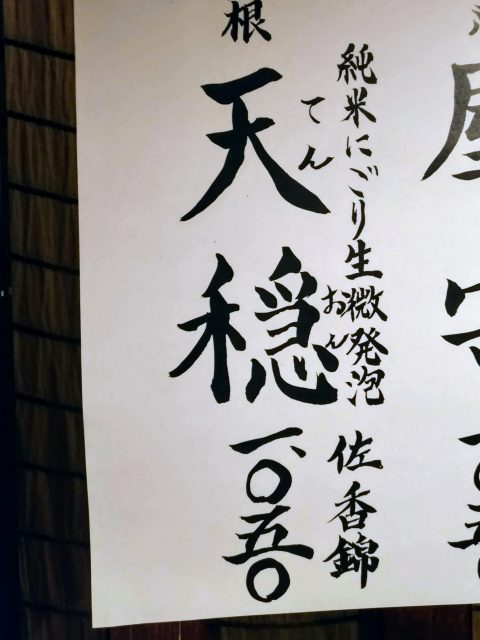 純米にごり生微発泡 佐香錦
てん おん
根 天穏 一、〇五〇